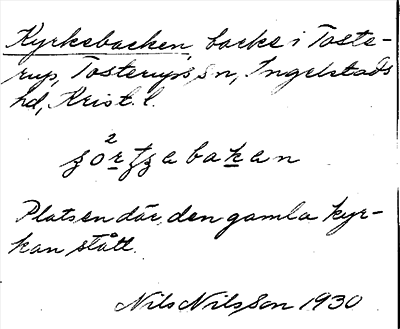 Kyrkebacken, backe i Toste-
rup, Tosterups sn, Ingelstads
hd, Krist. l.
Platsen där den gamla kyr-
kan stått.
Nils Nilsson 1930